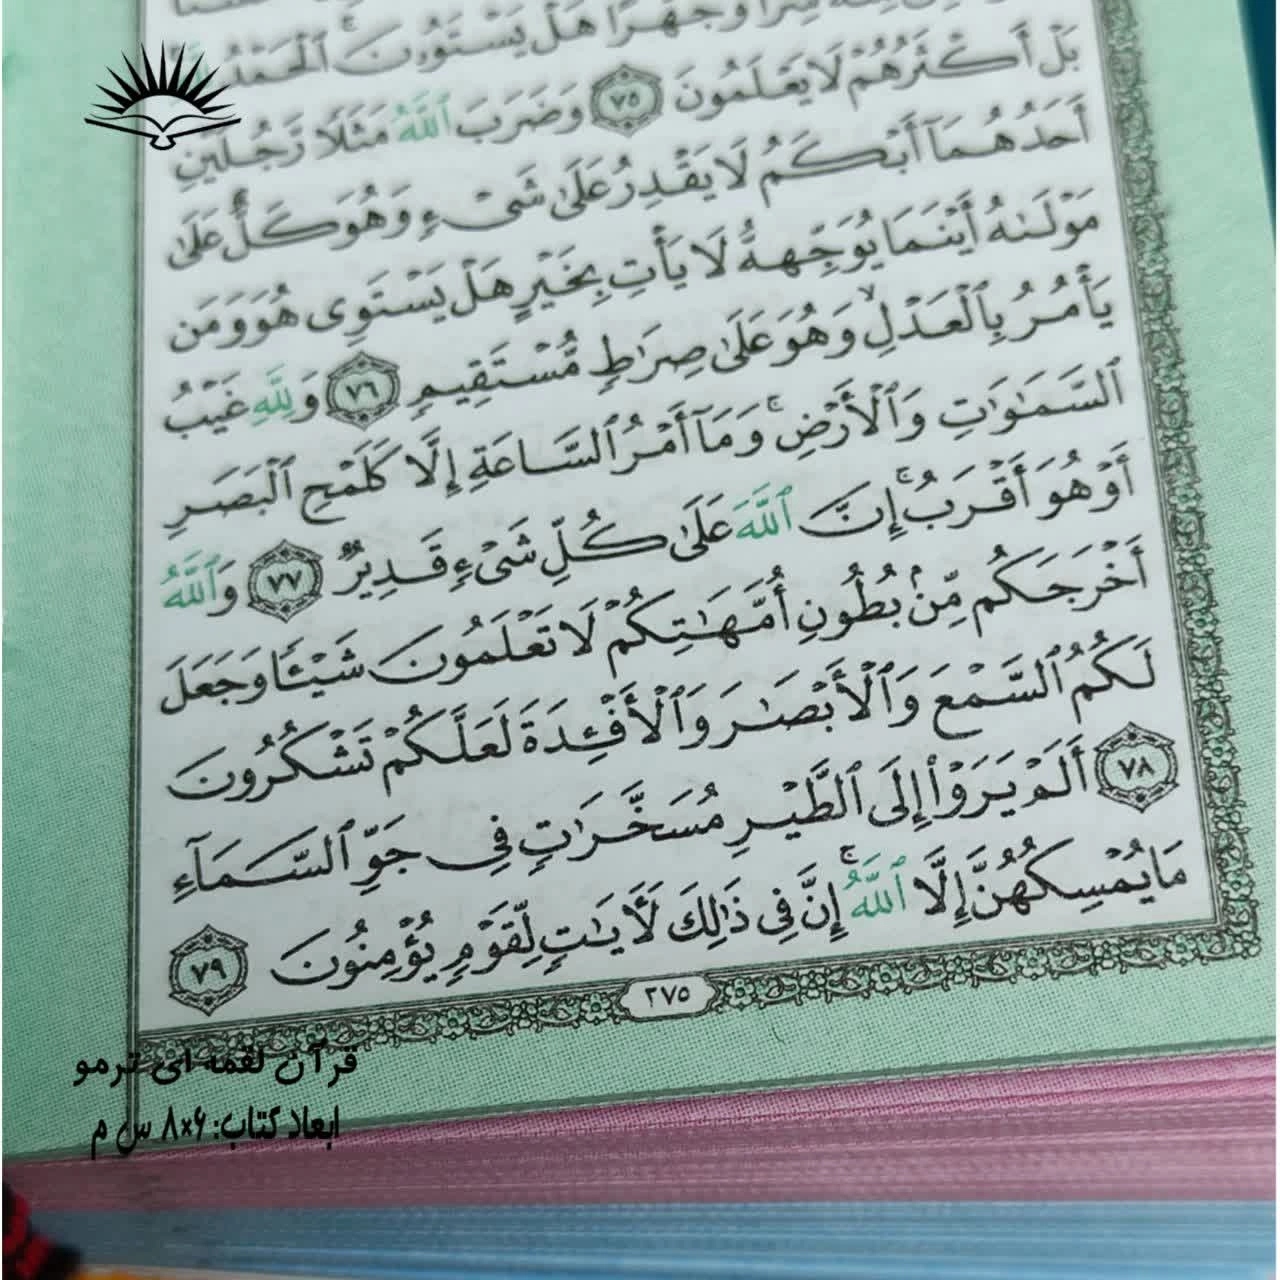 سِرًّا وَجَهْرًا هَلْ يَسْتَوُۥنَ ۚ ٱلْحَمْدُ
بَلْ أَكْثَرُهُمْ لَا يَعْلَمُونَ ٧٥ وَضَرَبَ ٱللَّهُ مَثَلًا رَّجُلَيْنِ
أَحَدُهُمَآ أَبْكَمُ لَا يَقْدِرُ عَلَىٰ شَىْءٍ وَهُوَ كَلٌّ عَلَىٰ
مَوْلَىٰهُ أَيْنَمَا يُوَجِّههُّ لَا يَأْتِ بِخَيْرٍ هَلْ يَسْتَوِى هُوَ وَمَن
يَأْمُرُ بِٱلْعَدْلِ ۙ وَهُوَ عَلَىٰ صِرَٰطٍ مُّسْتَقِيمٍ ٧٦ وَلِلَّهِ غَيْبُ
ٱلسَّمَٰوَٰتِ وَٱلْأَرْضِ ۚ وَمَآ أَمْرُ ٱلسَّاعَةِ إِلَّا كَلَمْحِ ٱلْبَصَرِ
أَوْ هُوَ أَقْرَبُ ۚ إِنَّ ٱللَّهَ عَلَىٰ كُلِّ شَىْءٍ قَدِيرٌ ٧٧ وَٱللَّهُ
أَخْرَجَكُم مِّنۢ بُطُونِ أُمَّهَٰتِكُمْ لَا تَعْلَمُونَ شَيْـًٔا وَجَعَلَ
لَكُمُ ٱلسَّمْعَ وَٱلْأَبْصَٰرَ وَٱلْأَفْـِٔدَةَ لَعَلَّكُمْ تَشْكُرُونَ
٧٨ أَلَمْ يَرَوْا۟ إِلَى ٱلطَّيْرِ مُسَخَّرَٰتٍ فِى جَوِّ ٱلسَّمَآءِ
مَا يُمْسِكُهُنَّ إِلَّا ٱللَّهُ ۚ إِنَّ فِى ذَٰلِكَ لَءَايَٰتٍ لِّقَوْمٍ يُؤْمِنُونَ ٧٩
٢٧٥
قرآن لقمه ای ترمو
ابعاد کتاب: ۸×۶ س م